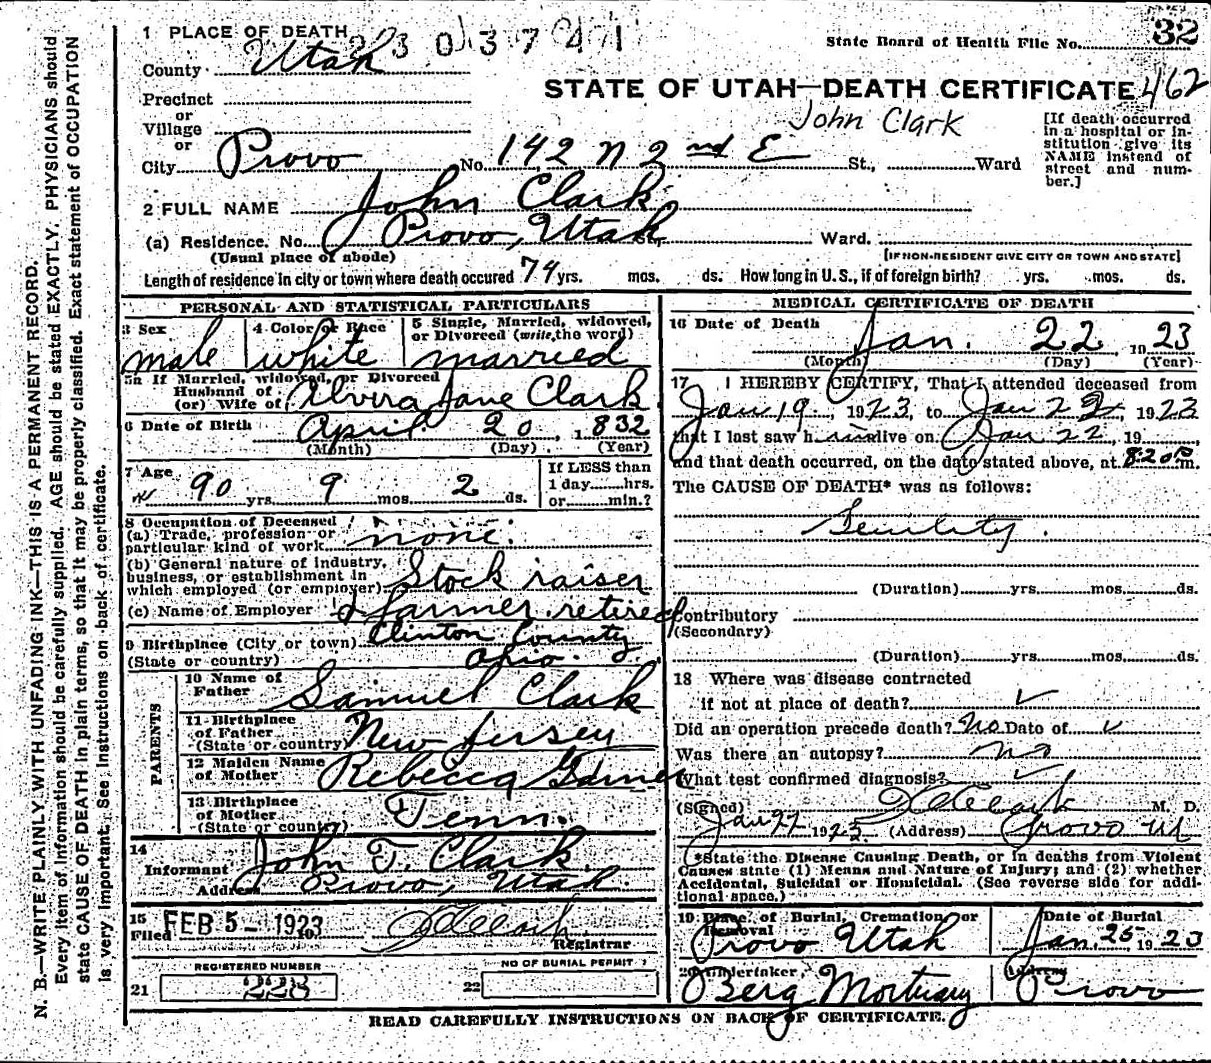 1 PLACE OF DEATH
State Board of Health File No. 32
County Utah
STATE OF UTAH—DEATH CERTIFICATE 462
Precinct
or
Village
or
John Clark
[If death occurred in a hospital or institution give its NAME instead of street and number.]
City Provo No. 142 N 2nd E St., Ward
2 FULL NAME John Clark
(a) Residence. No. Provo, Utah St. Ward.
(Usual place of abode) [IF NON-RESIDENT GIVE CITY OR TOWN AND STATE]
Length of residence in city or town where death occured 74 yrs. mos. ds. How long in U. S., if of foreign birth? yrs. mos. ds.
PERSONAL AND STATISTICAL PARTICULARS
3 Sex
male
4 Color or Race
white
5 Single, Married, widowed, or Divorced (write the word)
married
5a If Married, widowed, or Divorced
Husband of
(or) Wife of Elvira Jane Clark
6 Date of Birth April 20, 1832
(Month) (Day) (Year)
7 Age 90 yrs. 9 mos. 2 ds.
If LESS than
1 day hrs.
or min.?
8 Occupation of Deceased
(a) Trade, profession or
particular kind of work none.
(b) General nature of industry,
business, or establishment in
which employed (or employer) Stock raiser
(c) Name of Employer & farmer retired
9 Birthplace (City or town) Clinton County
(State or country) Ohio.
PARENTS
10 Name of
Father Samuel Clark
11 Birthplace
of Father
(State or country) New Jersey
12 Maiden Name
of Mother Rebecca
13 Birthplace
of Mother
(State or country) Tenn.
14
Informant John T. Clark
Address Provo, Utah.
15
Filed FEB 5 - 1923
Registrar
REGISTERED NUMBER
21 228
NO OF BURIAL PERMIT
22
MEDICAL CERTIFICATE OF DEATH
16 Date of Death Jan. 22 1923
(Month) (Day) (Year)
17 I HEREBY CERTIFY, That I attended deceased from
Jan 19, 1923, to Jan 22, 1923
that I last saw him alive on Jan 22, 19
and that death occurred, on the date stated above, at 8:20 P m.
The CAUSE OF DEATH* was as follows:
Senility.
(Duration) yrs. mos. ds.
Contributory
(Secondary)
(Duration) yrs. mos. ds.
18 Where was disease contracted
if not at place of death? ✓
Did an operation precede death? No Date of ✓
Was there an autopsy? no
What test confirmed diagnosis? ✓
(Signed) M. D.
Jan 22 1923. (Address) Provo Ut
*State the Disease Causing Death, or in deaths from Violent
Causes state (1) Means and Nature of Injury; and (2) whether
Accidental, Suicidal or Homicidal. (See reverse side for addi-
tional space.)
19 Place of Burial, Cremation, or
Removal
Provo Utah
Date of Burial
Jan. 25, 1923
20 Undertaker
Berg Mortuary
Address
Provo
READ CAREFULLY INSTRUCTIONS ON BACK OF CERTIFICATE.
N. B.—WRITE PLAINLY WITH UNFADING INK—THIS IS A PERMANENT RECORD.
Every item of information should be carefully supplied. AGE should be stated EXACTLY. PHYSICIANS should
state CAUSE OF DEATH in plain terms, so that it may be properly classified. Exact statement of OCCUPATION
is very important. See instructions on back of certificate.